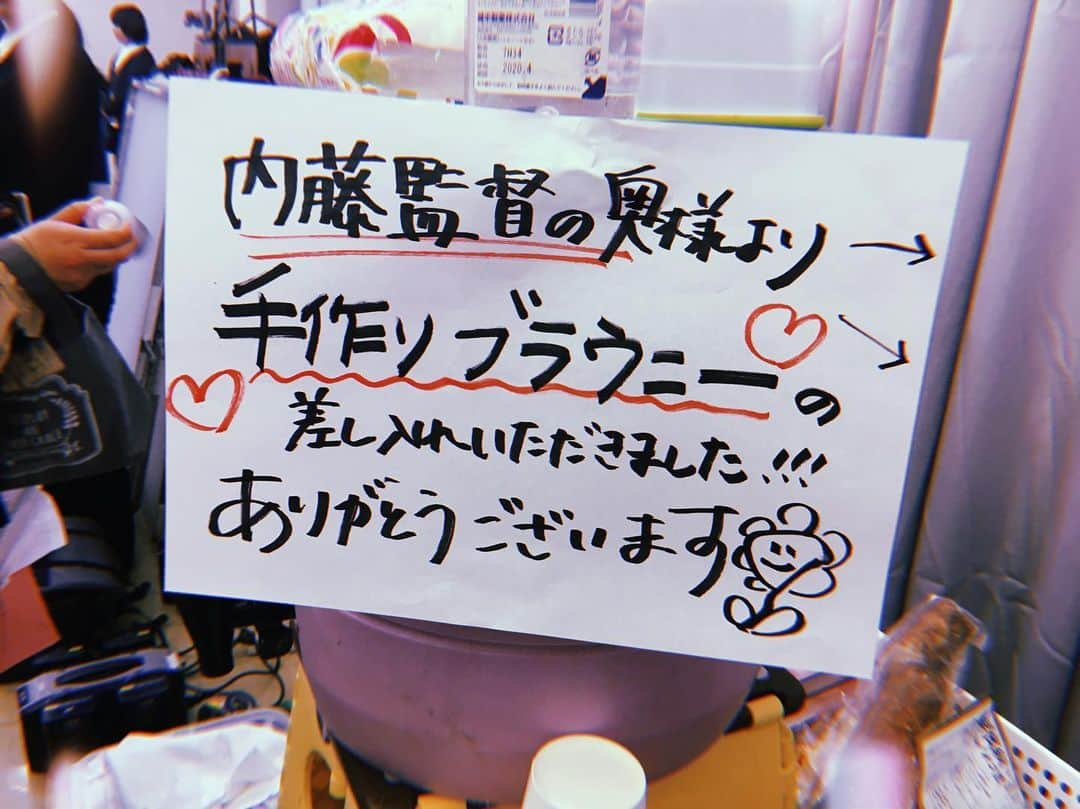 7H34
2020.4
内藤監督の奥様より→
手作りブラウニーの
差し入れいただきました!!!
ありがとうございます